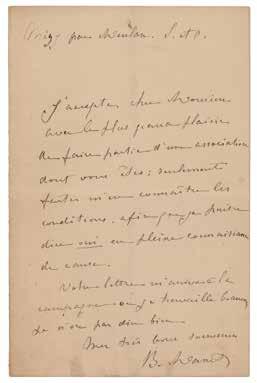 pour Meulan. S. et O.
J'accepte, cher Monsieur
avec le plus grand plaisir
de faire partie d'une association
dont vous êtes ; seulement
faites m'en connaître les
conditions, afin que je puisse
dire oui en pleine connaissance
de cause.
Votre lettre m'arrive à la
campagne où je travaille beaucoup
je n'ose pas dire bien.
Mes très bons souvenirs
B.